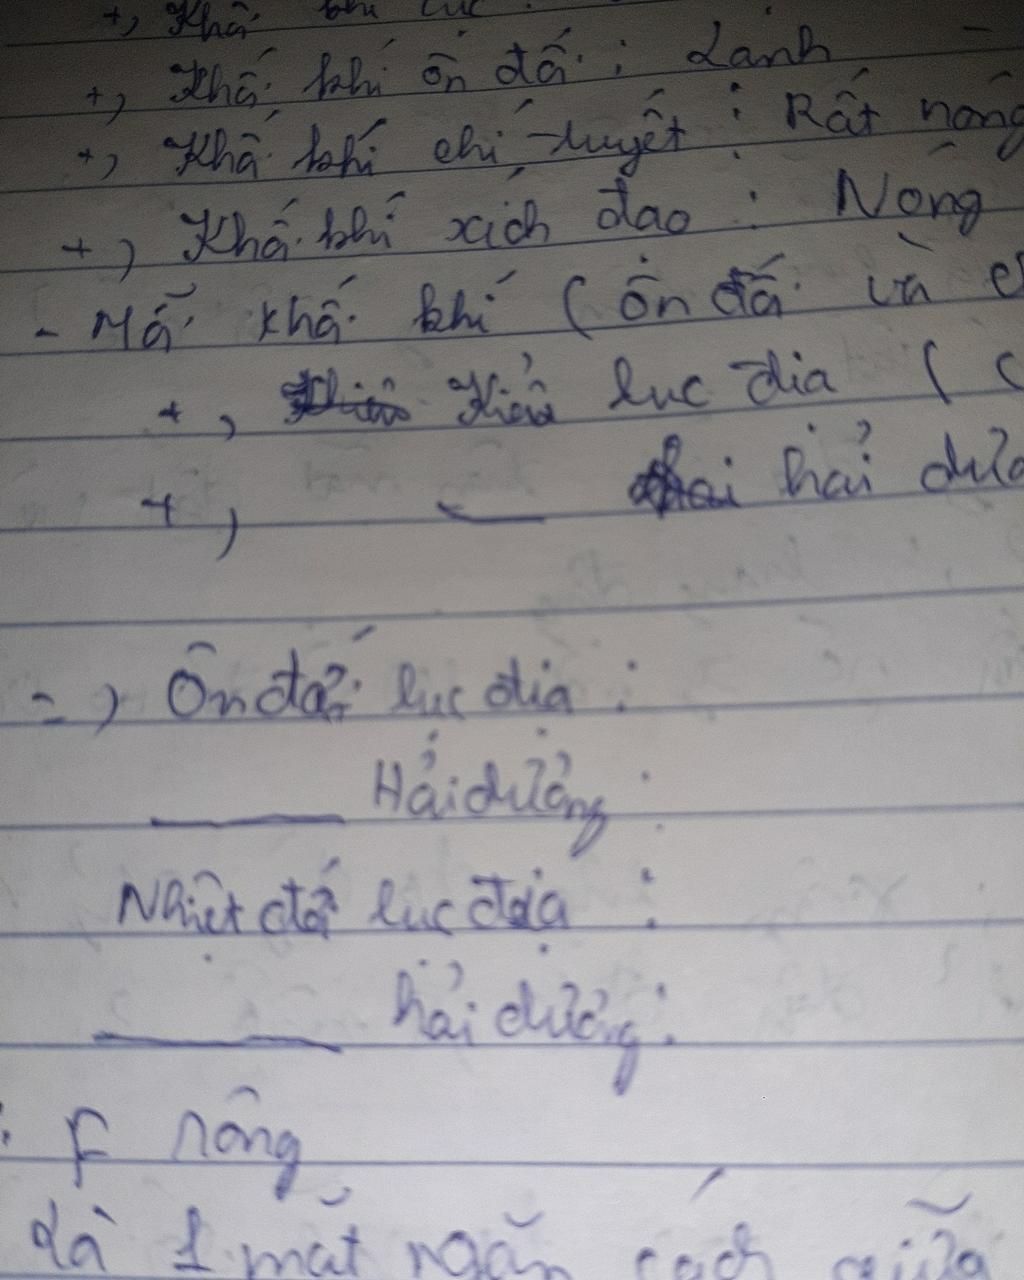 +, Khối khí cực :
+, Khối khí ôn đới : Lạnh
+, Khối khí chí tuyến : Rất nóng
+, Khối khí xích đạo : Nóng
- Mỗi khối khí (ôn đới và
+, Kiểu lục địa (
+, hải dươ
=, Ôn đới lục địa :
Hải dương :
Nhiệt đới lục địa :
hải dương :
: F nóng
Là 1 mặt ngăn cách giữa